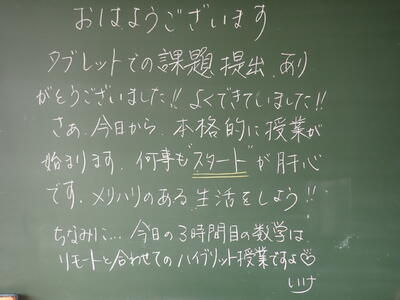 おはようございます
タブレットでの課題提出、あり
がとうございました!! よくできていました!!
さあ、今日から、本格的に授業が
始まります。何事も"スタート"が肝心
です。メリハリのある生活をしよう!!
ちなみに… 今日の3時間目の数学は、
リモートと合わせてのハイブリット授業ですよ♡
いけ